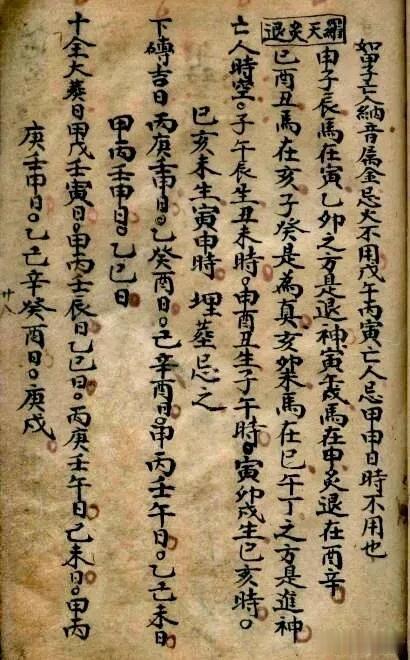 如甲子亡人納音属金忌火不用戊午丙寅亡人忌甲申日時不用也
羅天炙退
申子辰馬在寅乙卯之方是退神寅午戌馬在申炙退在酉辛
巳酉丑馬在亥子癸是為真亥卯未馬在巳午丁之方是進神
亡人時空。子午辰生丑未時。申酉丑生子午時。寅卯戌生巳亥時。
巳亥未生寅申時 埋塟忌之
下磚吉日 丙庚壬申日。乙癸酉日。己辛酉日。甲丙壬午日。乙己未日
甲丙壬申日。乙巳日
十全大葬日甲戊壬寅日。甲丙壬辰日乙巳日。丙庚壬午日己未日。甲丙
庚壬申日。乙己辛癸酉日。庚戌
廿八